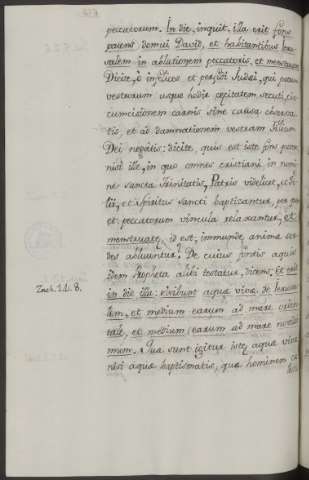 peccatorum. In die, inquit, illa erit fons
patens domui David, et habitantibus Jeru
salem in ablutionem peccatoris, et menstruatæ.
Dicite, ò infelices et perfidi Judæi, qui patrum
vestrorum usque hodie cæcitatem secuti, cir
cumcisionem carnis sine causa observa
tis, et ad damnationem vestram Filium
Dei negatis: dicite, quis est iste fons patens,
nisi ille, in quo omnes cristiani, in nomi
ne sanctæ Trinitatis, Patris videlicet, et Fi
lii, et Spiritus Sancti baptizantur, per quem
et peccatorum vincula relaxantur, et
menstruatæ, id est, immundæ animæ sor
des abluuntur? De cujus fontis aquis
idem Propheta alibi testatur, dicens, et erit
in die illa: exibunt aquæ vivæ de Jerusa
lem, et medium earum ad mare orien
tale, et medium earum ad mare novissi
mum. Quæ sunt igitur istæ aquæ vivæ
nisi aquæ baptismatis, quæ hominem
Zach. 14. 8.